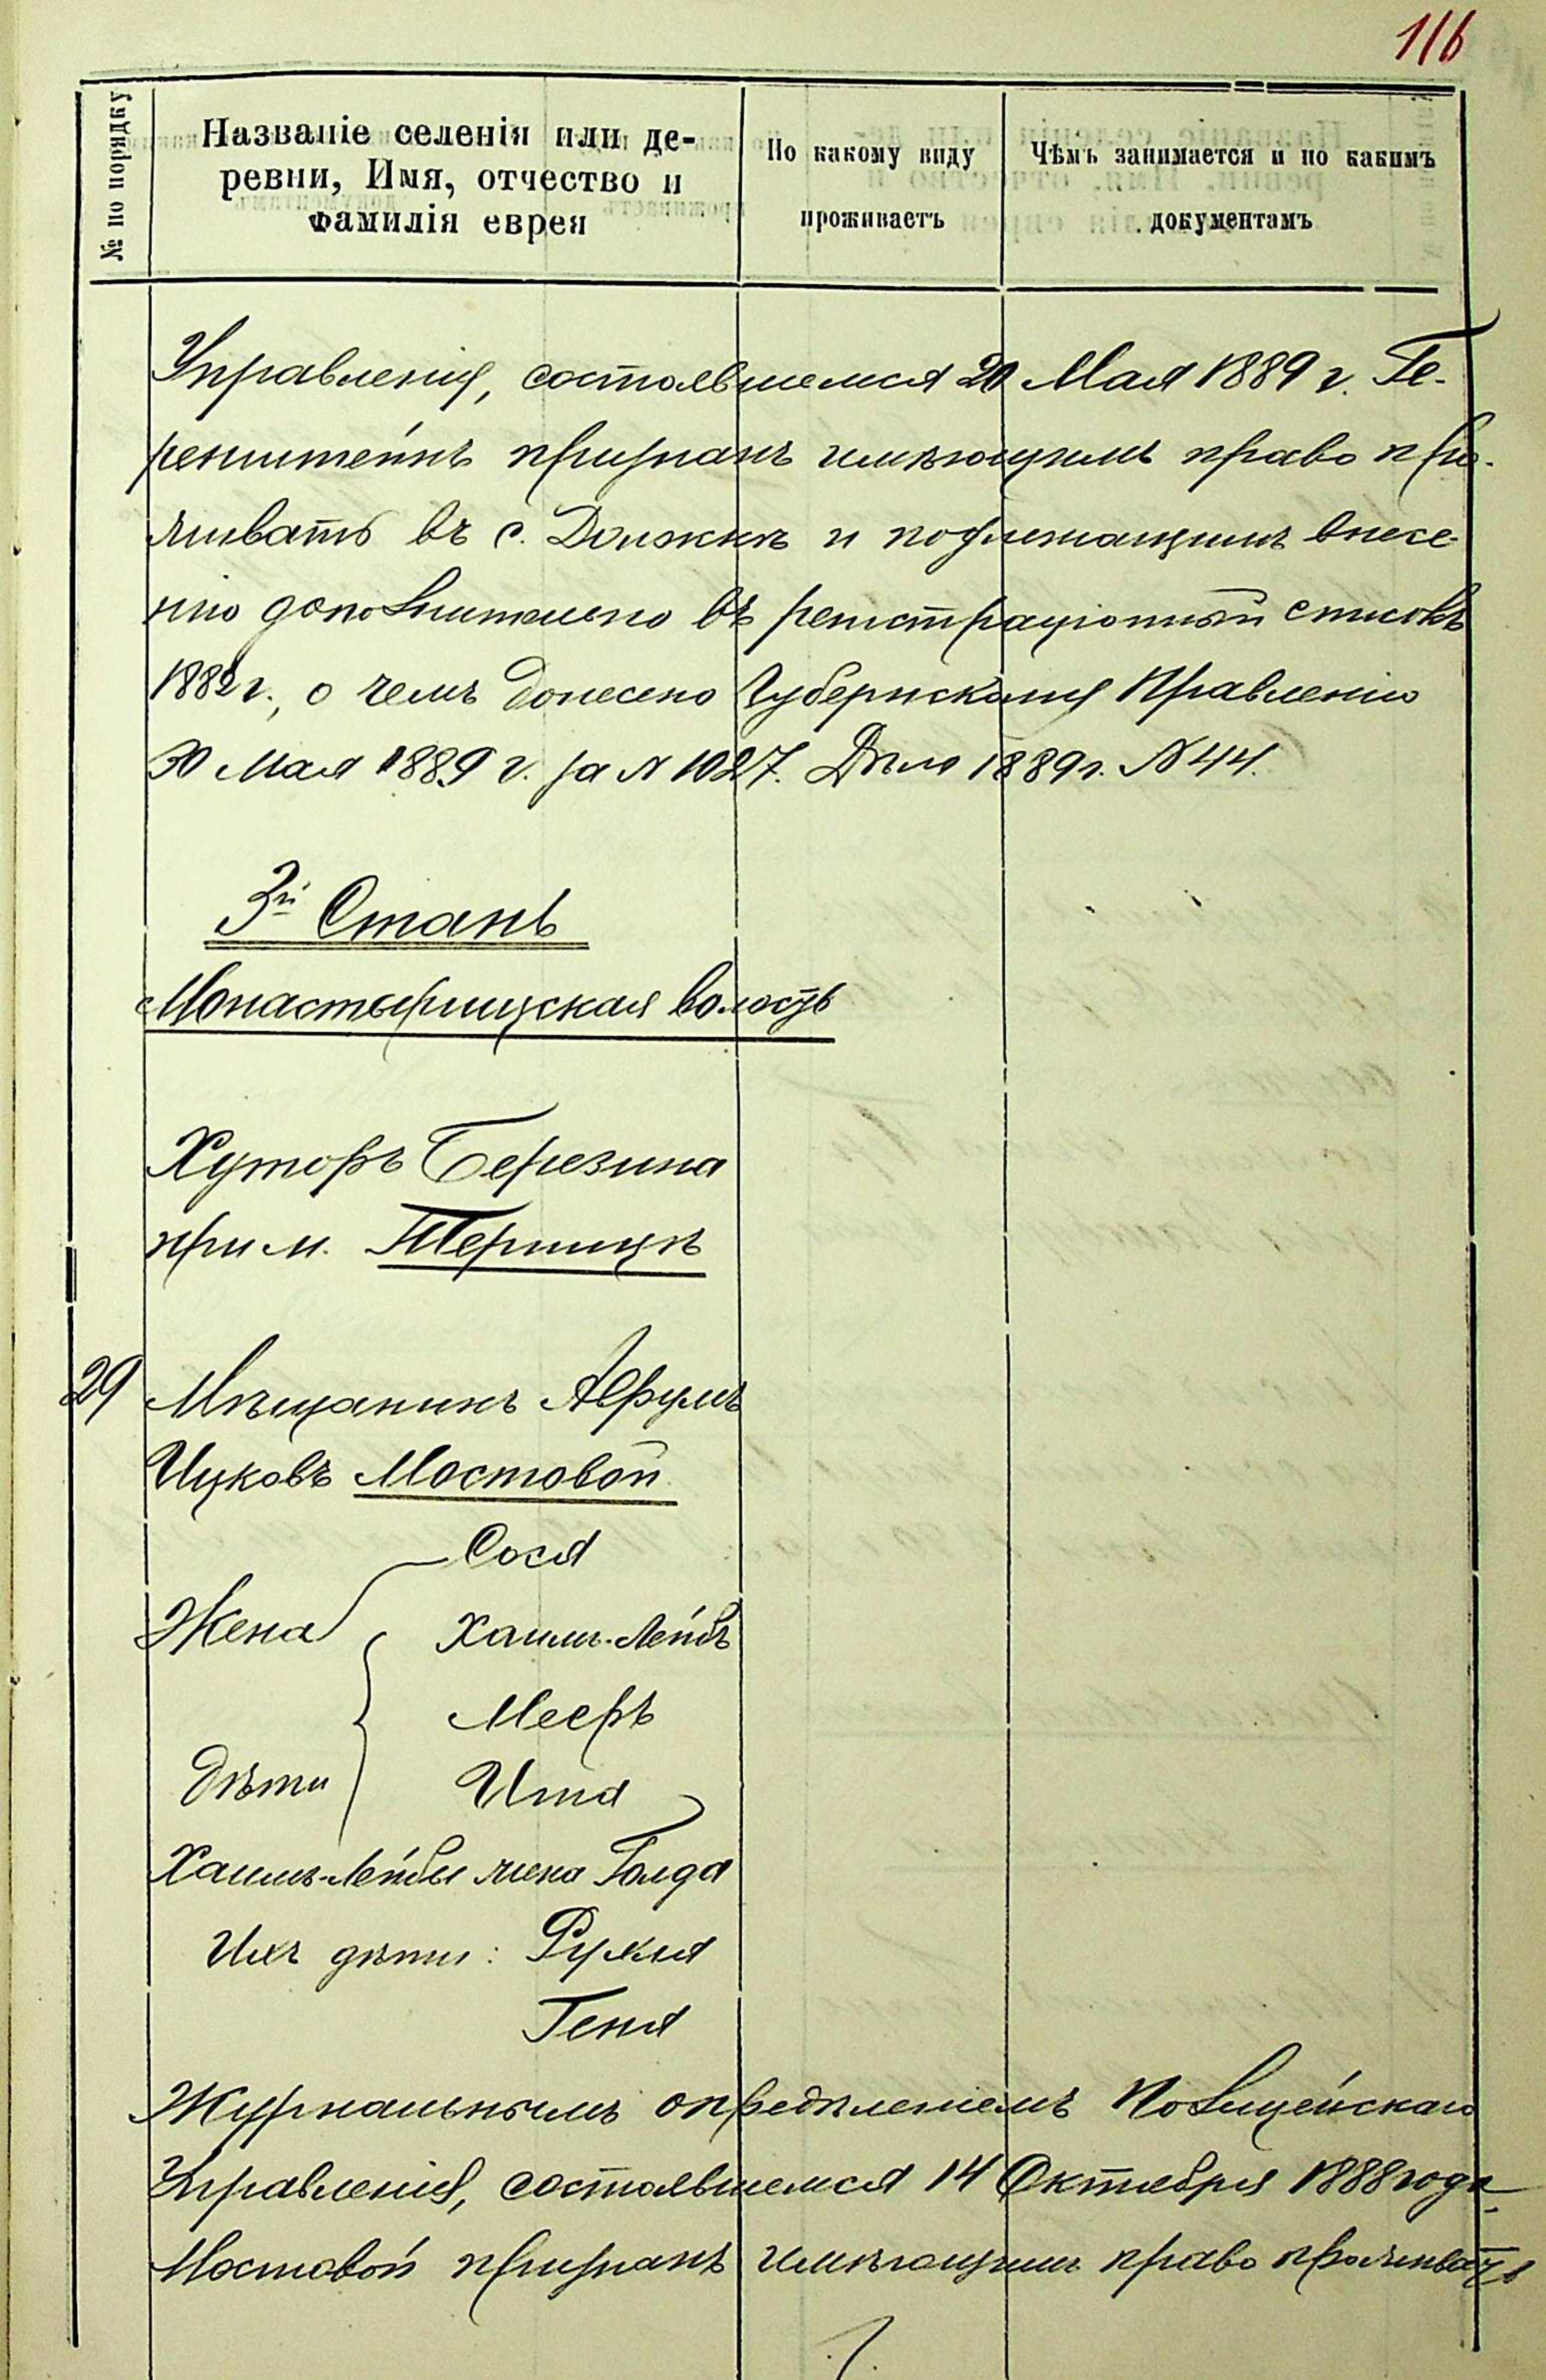 116
№ по порядку
Названіе селенія или де-
ревни, Имя, отчество и
фамилія еврея
По какому виду
проживаетъ
Чѣмъ занимается и по какимъ
документамъ
Управленія, состоявшемся 20 Мая 1889 г. Ге-
ренштейнъ признанъ имѣющимъ право про-
живать въ с. Должкѣ и подлежащимъ внесе-
нію дополнительно въ регистраціонный списокъ
1882 г., о чемъ донесено Губернскому Правленію
30 Мая 1889 г. за № 1027. Дѣло 1889 г. № 44.
3й Станъ
Монастырищская волость
Хуторъ Березина
при м. Терлицѣ
29 Мѣщанинъ Аврумъ
Ицковъ Мостовой
Сося
Жена Хаимъ-Лейбъ
Мееръ
дѣти Ита
Хаимъ-Лейбы жена Голда
Ихъ дѣти: Рухля
Геня
Журнальнымъ опредѣленіемъ Полицейскаго
Управленія, состоявшемся 14 Октября 1888 года
Мостовой признанъ имѣющимъ право проживать